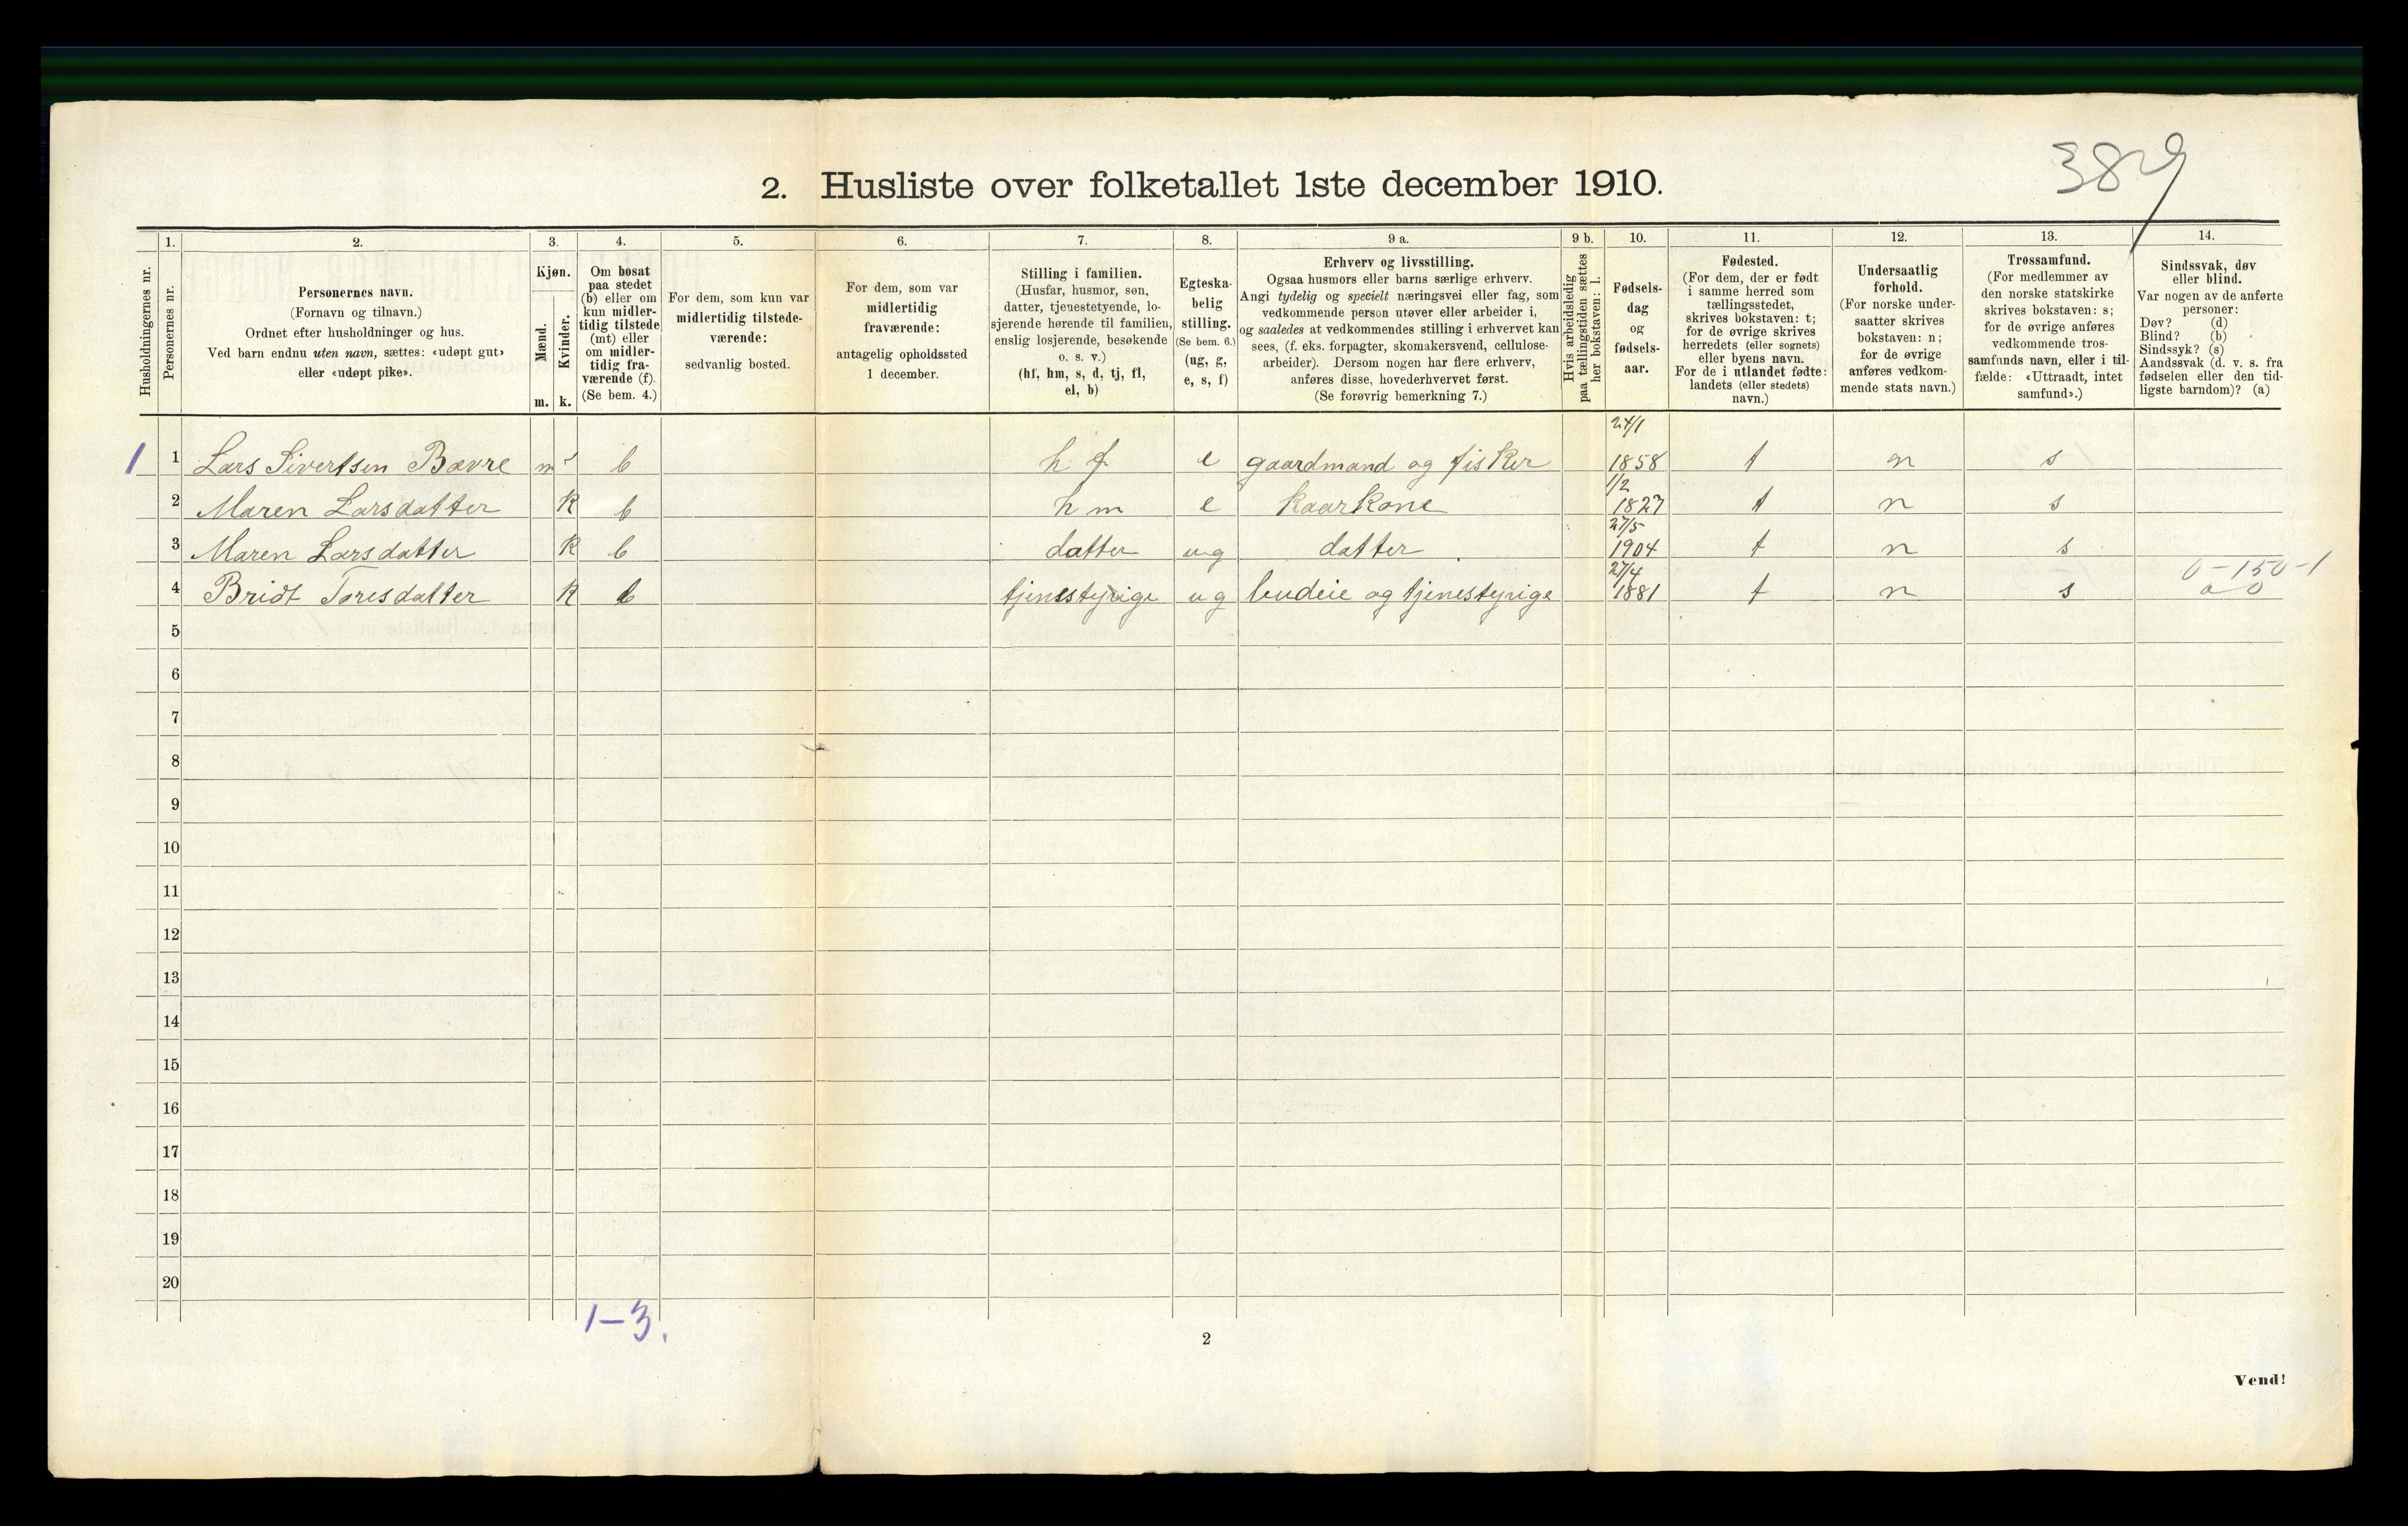 389
2. Husliste over folketallet 1ste december 1910.
1. 2. 3. 4. 5. 6. 7. 8. 9 a. 9 b. 10. 11. 12. 13. 14.
Husholdningernes nr.
Personernes nr.
Personernes navn.
(Fornavn og tilnavn.)
Ordnet efter husholdninger og hus.
Ved barn endnu uten navn, sættes: «udøpt gut»
eller «udøpt pike».
Kjøn.
Mænd.
Kvinder.
m. k.
Om bosat
paa stedet
(b) eller om
kun midler-
tidig tilstede
(mt) eller
om midler-
tidig fra-
værende (f).
(Se bem. 4.)
For dem, som kun var
midlertidig tilstede-
værende:
sedvanlig bosted.
For dem, som var
midlertidig
fraværende:
antagelig opholdssted
1 december.
Stilling i familien.
(Husfar, husmor, søn,
datter, tjenestetyende, lo-
sjerende hørende til familien,
enslig losjerende, besøkende
o. s. v.)
(hf, hm, s, d, tj, fl,
el, b)
Egteska-
belig
stilling.
(Se bem. 6.)
(ug, g,
e, s, f)
Erhverv og livsstilling.
Ogsaa husmors eller barns særlige erhverv.
Angi tydelig og specielt næringsvei eller fag, som
vedkommende person utøver eller arbeider i,
og saaledes at vedkommendes stilling i erhvervet kan
sees, (f. eks. forpagter, skomakersvend, cellulose-
arbeider). Dersom nogen har flere erhverv,
anføres disse, hovederhvervet først.
(Se forøvrig bemerkning 7.)
Hvis arbeidsledig
paa tællingstiden sættes
her bokstaven: l.
Fødsels-
dag
og
fødsels-
aar.
Fødested.
(For dem, der er født
i samme herred som
tællingsstedet,
skrives bokstaven: t;
for de øvrige skrives
herredets (eller sognets)
eller byens navn.
For de i utlandet fødte:
landets (eller stedets)
navn.)
Undersaatlig
forhold.
(For norske under-
saatter skrives
bokstaven: n;
for de øvrige
anføres vedkom-
mende stats navn.)
Trossamfund.
(For medlemmer av
den norske statskirke
skrives bokstaven: s;
for de øvrige anføres
vedkommende tros-
samfunds navn, eller i til-
fælde: «Uttraadt, intet
samfund».)
Sindssvak, døv
eller blind.
Var nogen av de anførte
personer:
Døv? (d)
Blind? (b)
Sindssyk? (s)
Aandssvak (d. v. s. fra
fødselen eller den tid-
ligste barndom)? (a)
1 1 Lars Sivertsen Bævre m b h f e gaardmand og fisker 24/1 1858 t n s
2 Maren Larsdatter k b h m e kaarkone 1/2 1827 t n s
3 Maren Larsdatter k b datter ug datter 27/5 1904 t n s
0-150-1
4 Bridt Toresdatter k b tjenestepige ug budeie og tjenestepige 27/4 1881 t n s
5
6
7
8
9
10
11
12
13
14
15
16
17
18
19
20
1-3.
2
Vend!